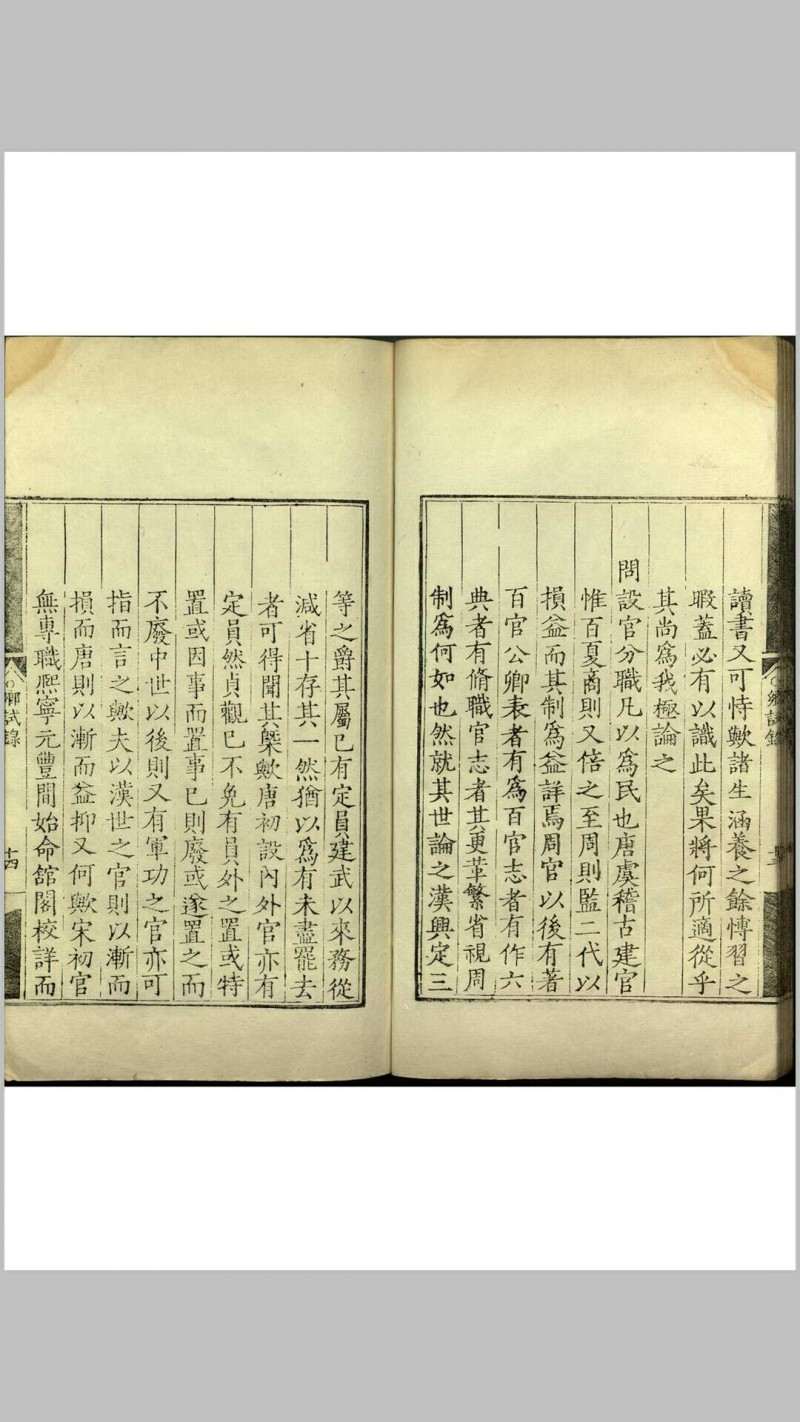 讀書又可恃歟諸生涵養之餘愽習之
暇蓋必有以識此矣果將何所適從乎
其尚爲我極論之
問設官分職凡以爲民也唐虞稽古建官
惟百夏商則又倍之至周則監二代以
損益而其制爲益詳焉周官以後有著
百官公卿表者有爲百官志者有作六
典者有脩職官志者其更革繁省視周
制爲何如也然就其世論之漢興定三
等之爵其屬已有定員建武以來務從
減省十存其一然猶以爲有未盡罷去
者可得聞其槩歟唐初設內外官亦有
定員然貞觀已不免有員外之置或特
置或因事而置事已則廢或遂置之而
不廢中世以後則又有軍功之官亦可
指而言之歟夫以漢世之官則以漸而
損而唐則以漸而益抑又何歟宋初官
無專職熈寧元豐間始命舘閣校詳而
鄉試錄
十四